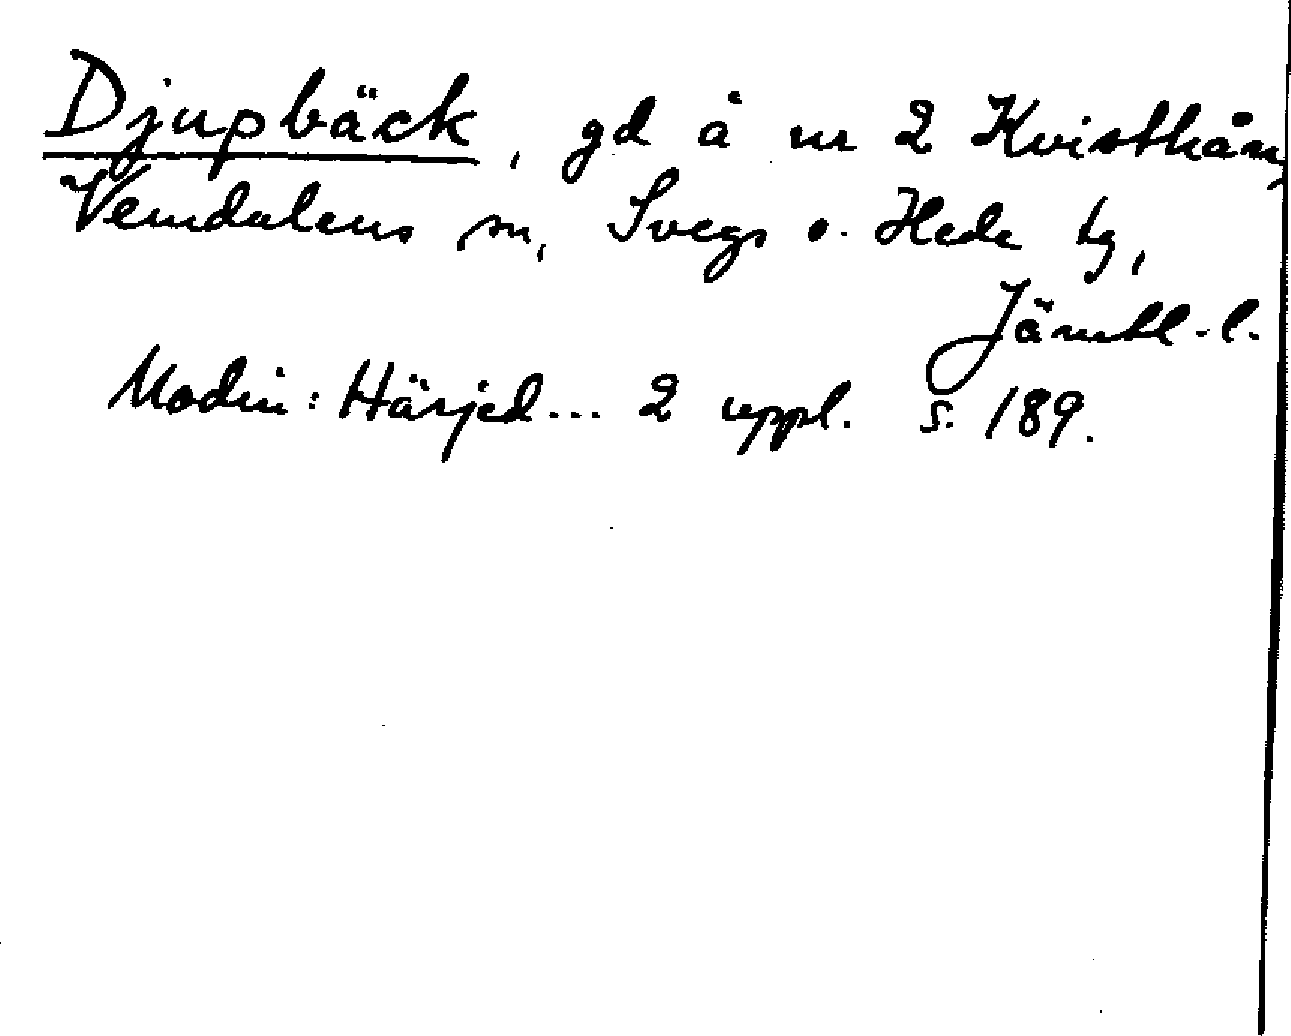 Djupbäck, gd å nr 2 Kvisthån,
Vemdalens sn, Svegs o. Hede tg,
Jämtl.l.
Modin: Härjed... 2 uppl. s. 189.